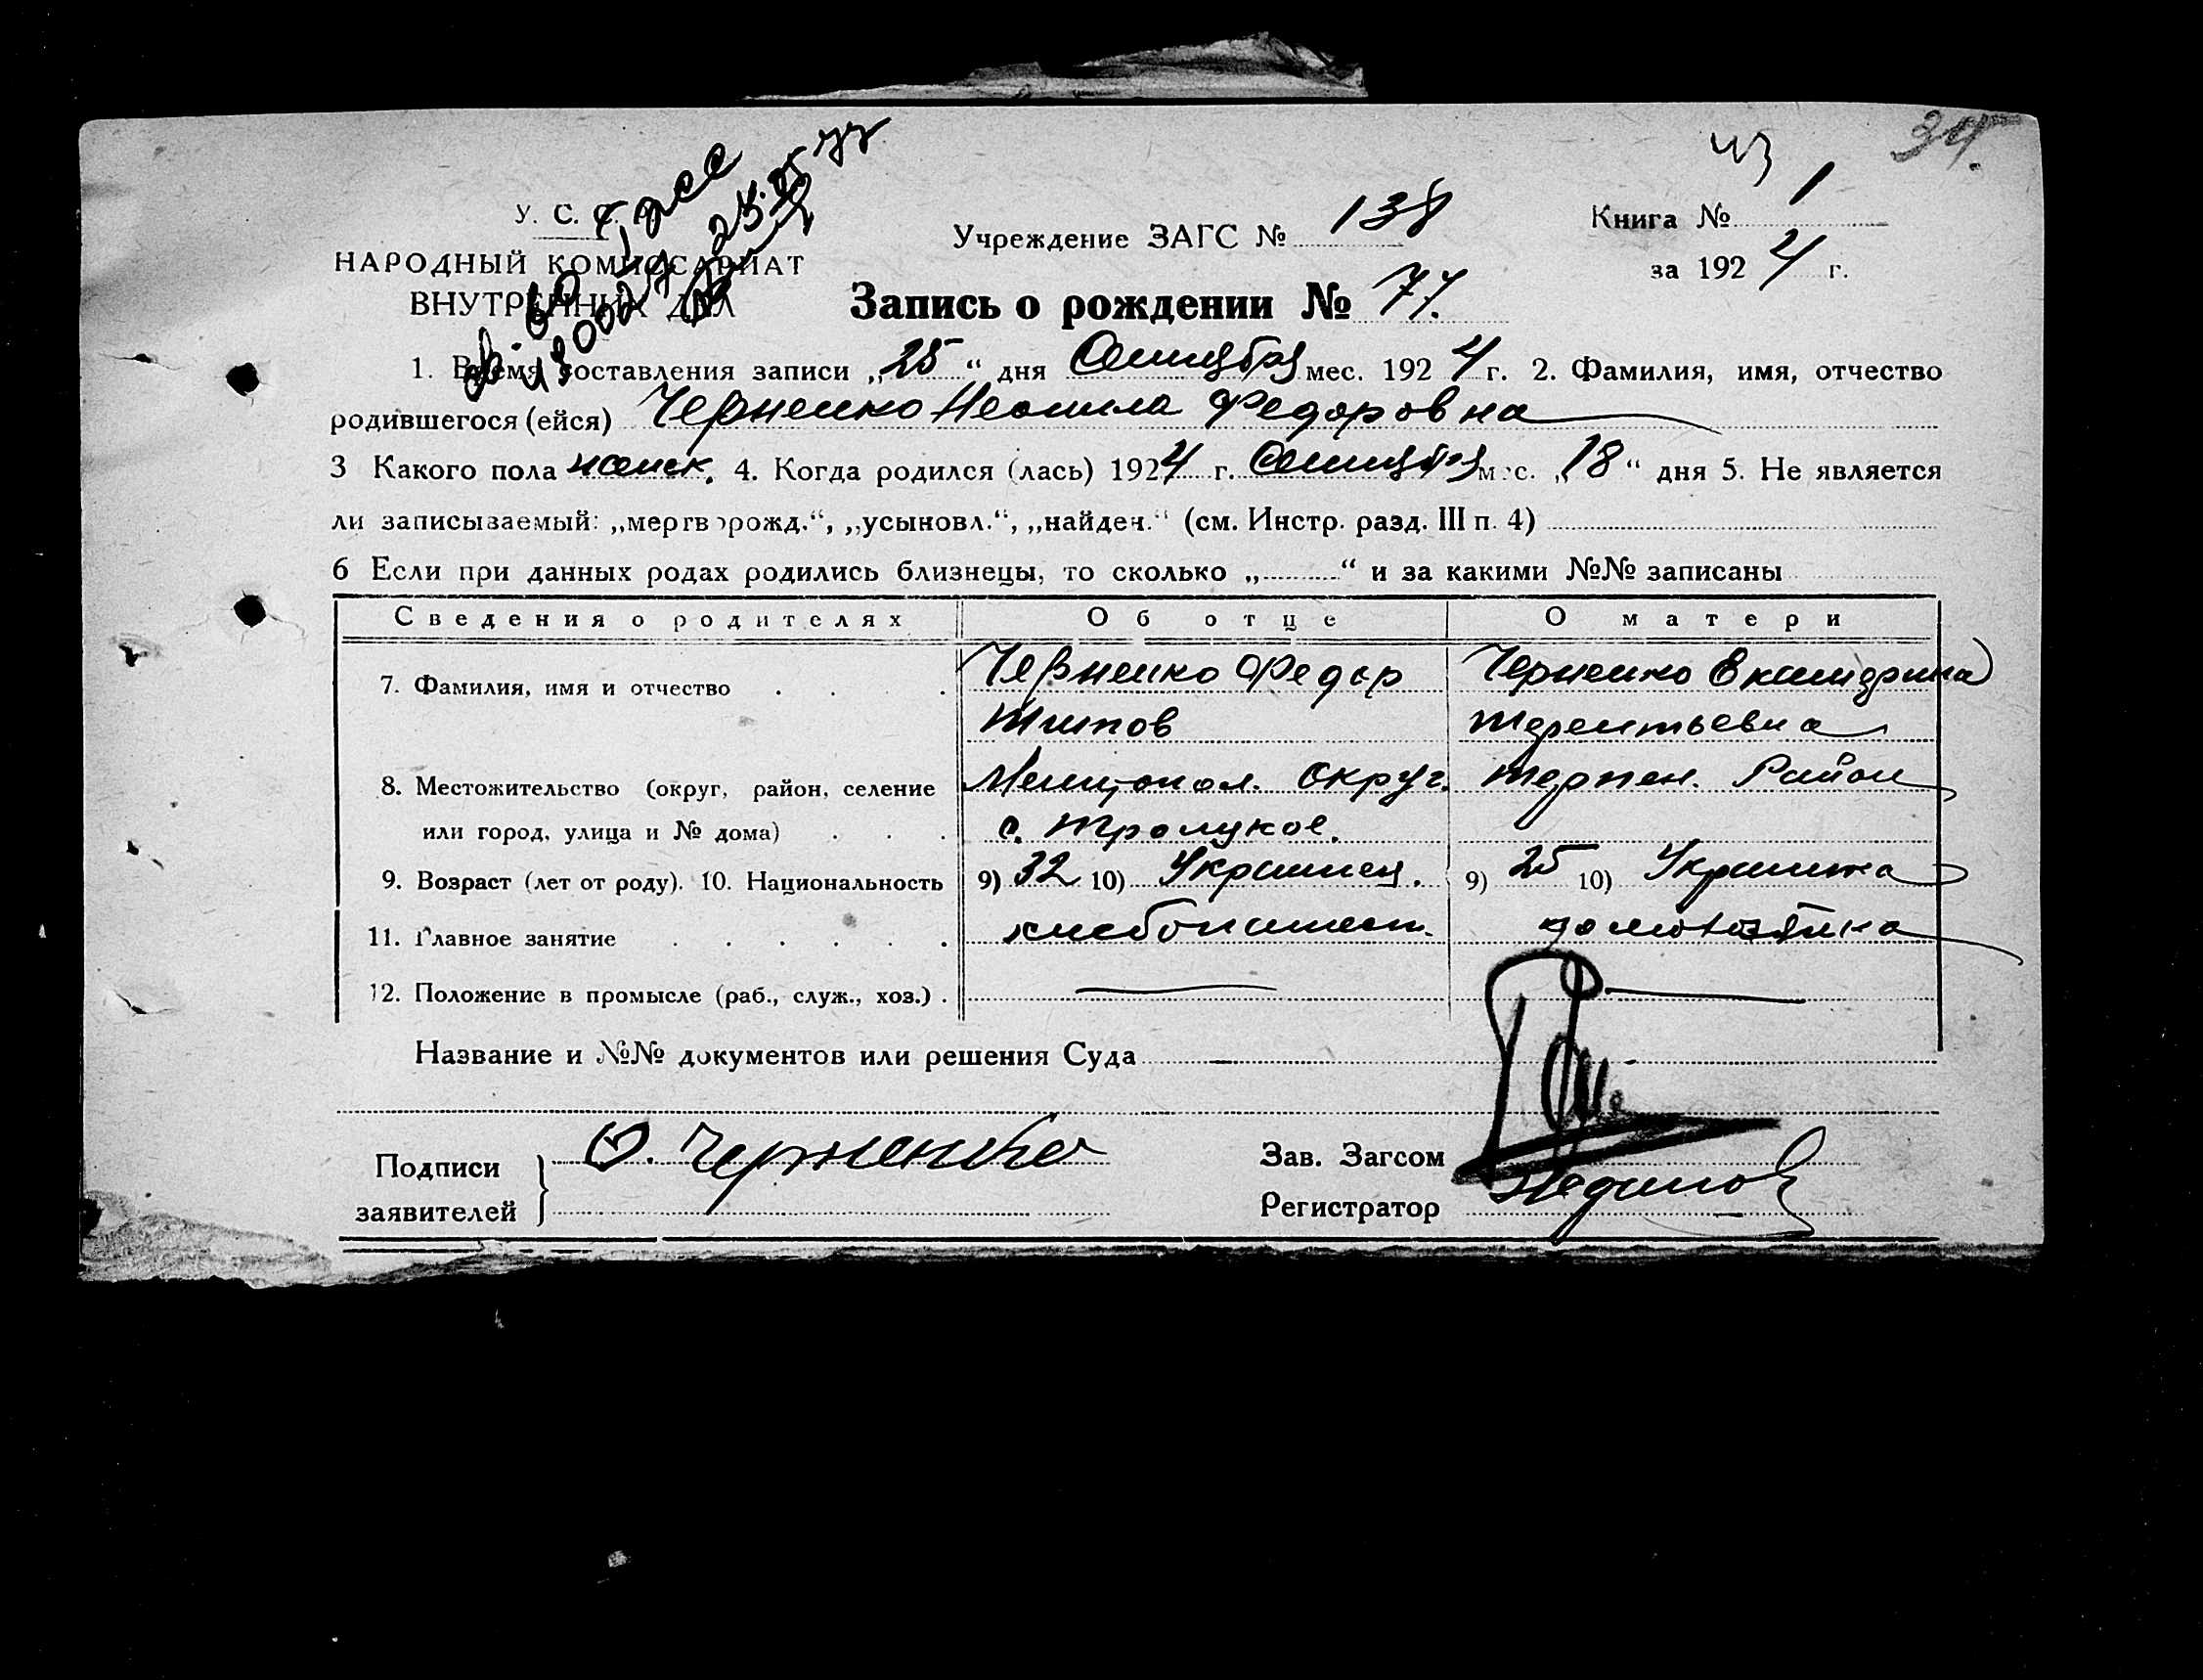 34.
из
У. С. С. Р.
Учреждение ЗАГС № 138
Книга № 1
НАРОДНЫЙ КОМИССАРИАТ
за 192 4 г.
ВНУТРЕННИХ ДЕЛ
Запись о рождении № 77.
1. Время составления записи „25“ дня Сентября мес. 192 4 г. 2. Фамилия, имя, отчество
родившегося (ейся) Черненко Неонила Федоровна
3 Какого пола женск. 4. Когда родился (лась) 1924 г. Сентября мес. „18“ дня 5. Не является
ли записываемый: „мертворожд.“, „усыновл.“, „найден.“ (см. Инстр. разд. III п. 4)
6 Если при данных родах родились близнецы, то сколько „ “ и за какими №№ записаны
Сведения о родителях Об отце О матери
7. Фамилия, имя и отчество Черненко Федор Черненко Екатерина
Терентьевна
8. Местожительство (округ, район, селение Мелитопол. Округ. Терпен. Район
или город, улица и № дома) с. Троицкое.
9. Возраст (лет от роду). 10. Национальность 9) 32 10) Украинец. 9) 25 10) Украинка
11. Главное занятие хлебопашест. домохозяйка
12. Положение в промысле (раб., служ., хоз.) .
Название и №№ документов или решения Суда
Подписи Ф. Черненко
заявителей
Зав. Загсом
Регистратор